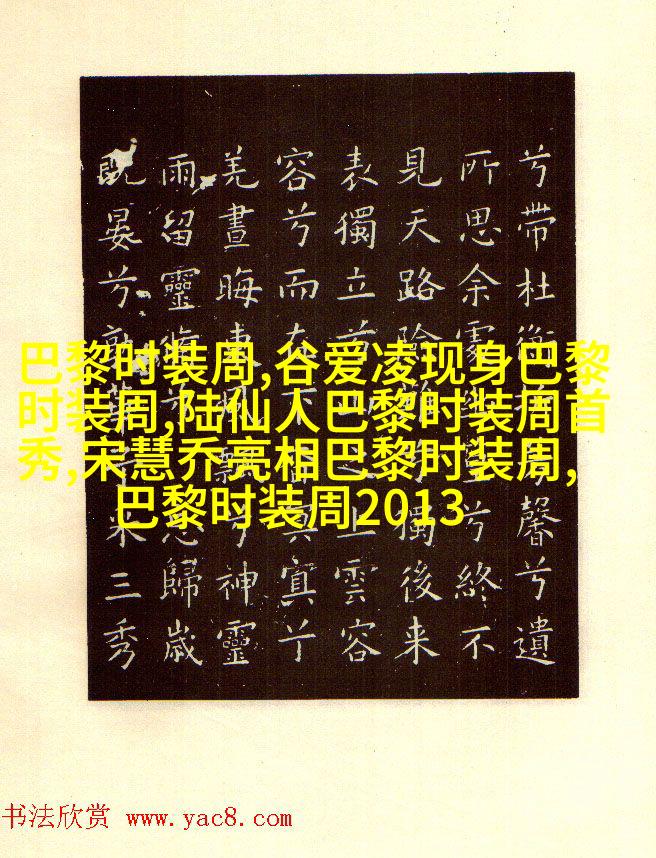 兮帶杜衡芳馨兮遺
所思余處篁兮終不
見天路險難兮獨後来
表獨立之上雲容
容兮而在下冥冥兮
羌晝晦東風飄兮神靈
雨留靈脩兮忘歸歲
既晏兮孰華采三秀
巴黎时装周,谷爱凌现身巴黎
时装周,陆仙人巴黎时装周首
秀,宋慧乔亮相巴黎时装周,
巴黎时装周2013
书法欣赏 www.yac8.com